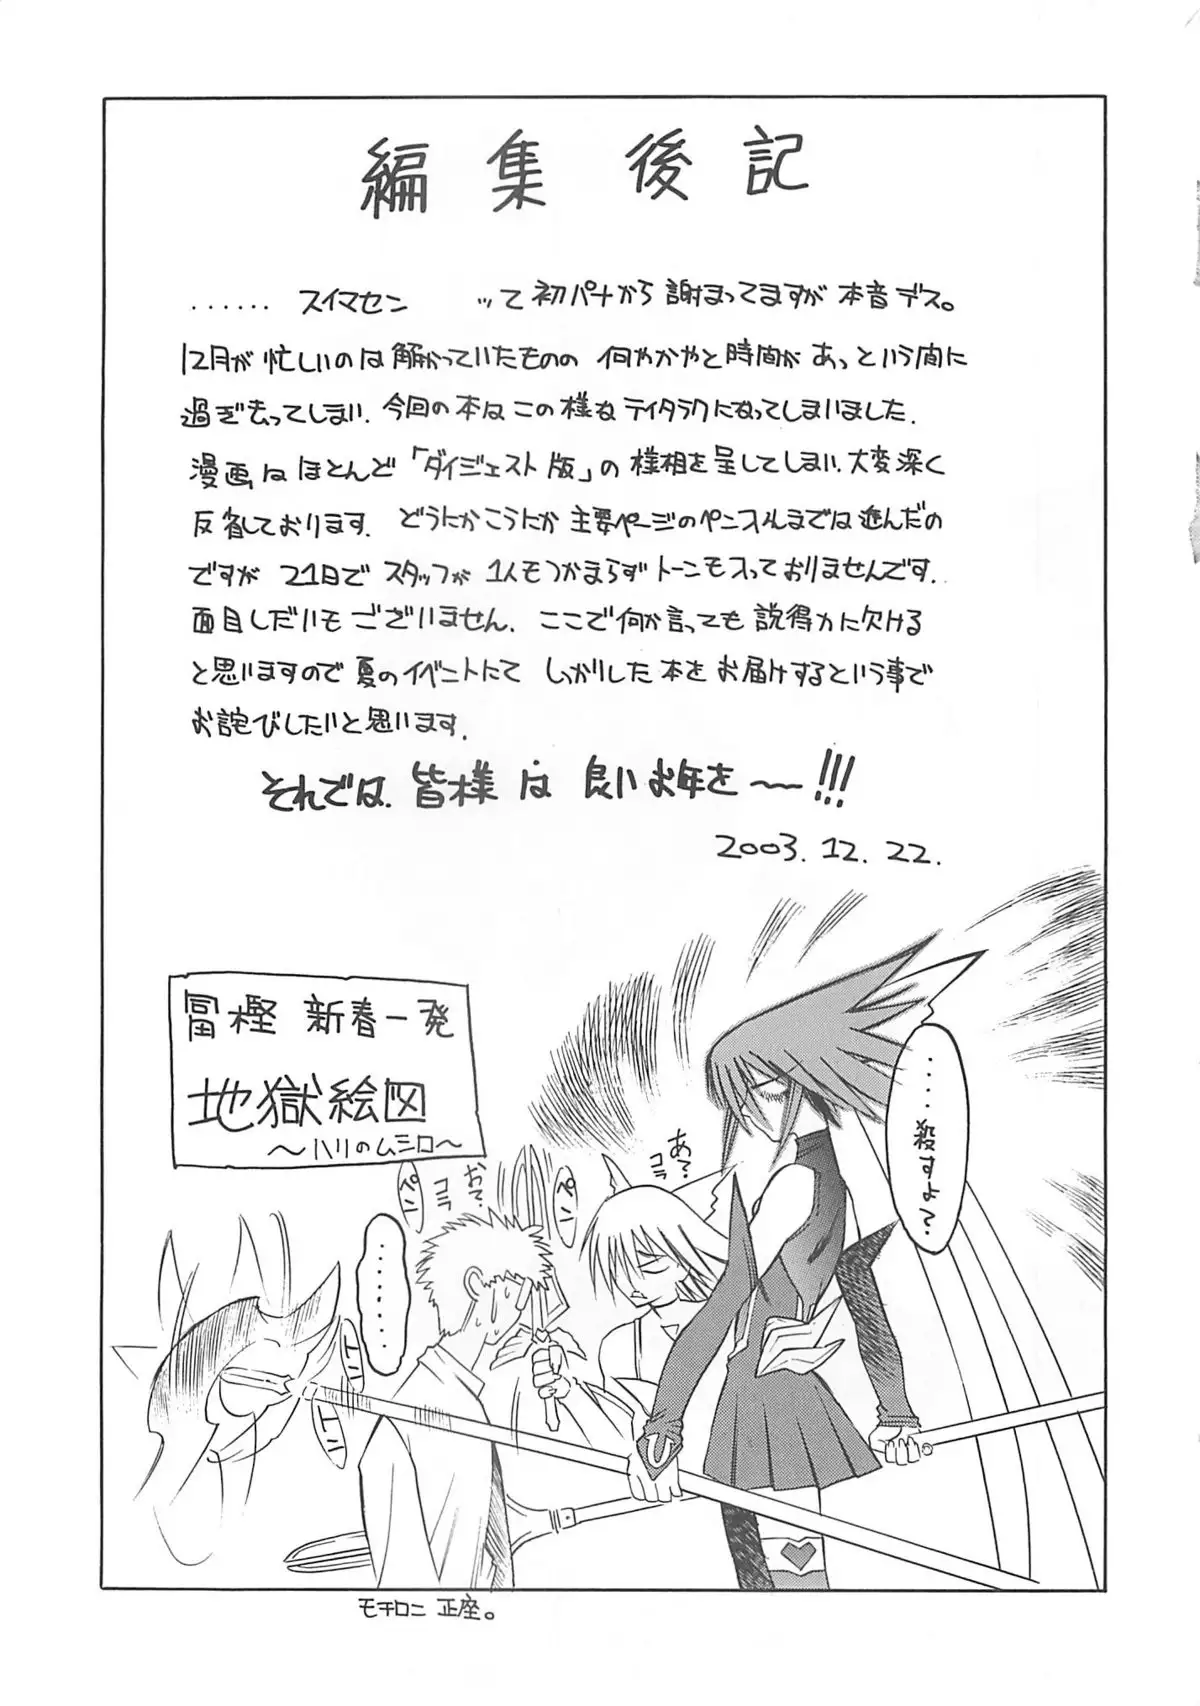 編集後記
...... スイマセン ッて初パナから謝まってますが本音デス。
12月が忙しいのは解かっていたものの 何やかやと時間があっという間に
過ぎ去ってしまい、今回の本はこの様なテイタラクになってしまいました。
漫画はほとんど「ダイジェスト版」の様相を呈してしまい、大変深く
反省しております。どうにかこうにか主要ページのペンスルまでは進んだの
ですが 21日でスタッフが1人もつかまらずトーンモハっておりませんです。
面目しだいもございません。ここで何か言っても説得力に欠ける
と思いますので夏のイベントにて しっかりした本をお届けするという事で
お詫びしたいと思います。
それでは、皆様は良いお年を〜!!!
2003.12.22.
冨樫 新春一発
地獄絵図
〜ハリのムシロ〜
.....殺すよ?
あ?
コラ
お?
コラ
ペン
ペン
......
モチロン 正座。